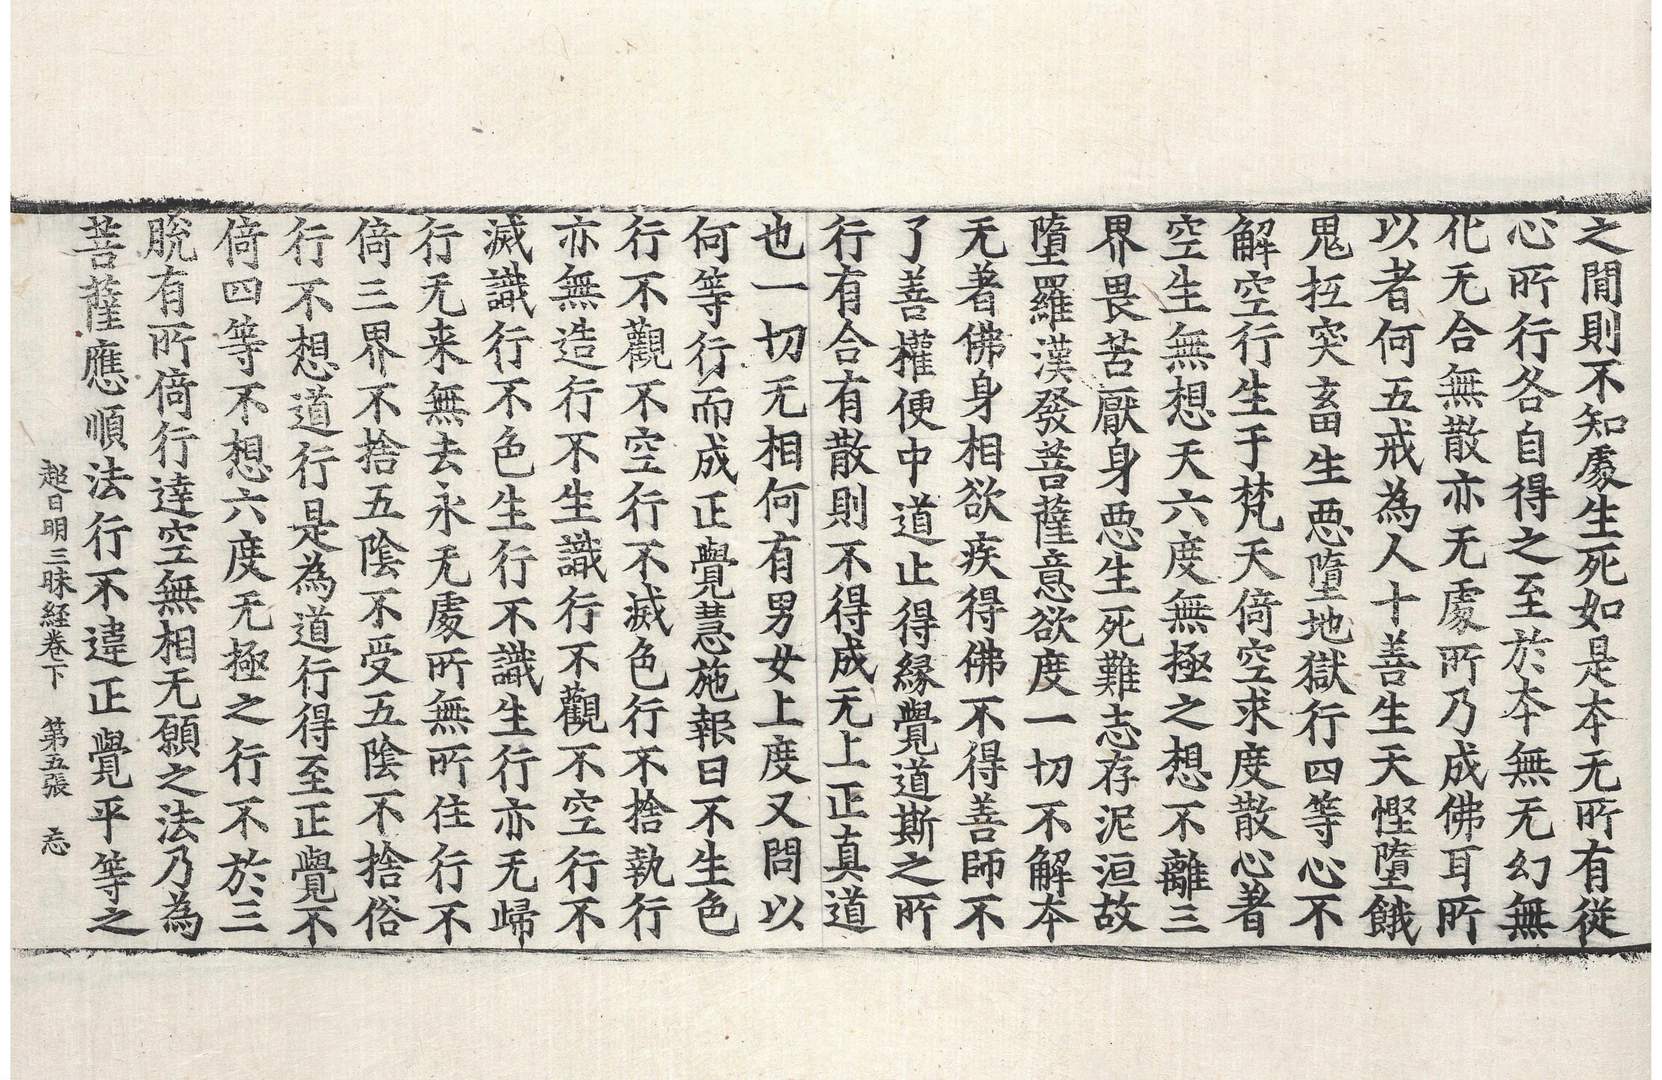 之間則不知處生死如是本无所有從
心所行各自得之至於本無无幻無
化无合無散亦无處所乃成佛耳所
以者何五戒為人十善生天慳墮餓
鬼抂突畜生惡墮地獄行四等心不
解空行生于梵天倚空求度散心著
空生無想天六度無極之想不離三
界畏苦厭身惡生死難志存泥洹故
墮羅漢發菩薩意欲度一切不解本
无著佛身相欲疾得佛不得善師不
了善權便中道止得緣覺道斯之所
行有合有散則不得成无上正真道
也一切无相何有男女上度又問以
何等行而成正覺慧施報曰不生色
行不觀不空行不滅色行不捨執行
亦無造行不生識行不觀不空行不
滅識行不色生行不識生行亦无歸
行无来無去永无處所無所住行不
倚三界不捨五陰不受五陰不捨俗
行不想道行是為道行得至正覺不
倚四等不想六度无極之行不於三
脫有所倚行達空無相无願之法乃為
菩薩應順法行不違正覺平等之
超日明三昧経卷下 第五張 忘